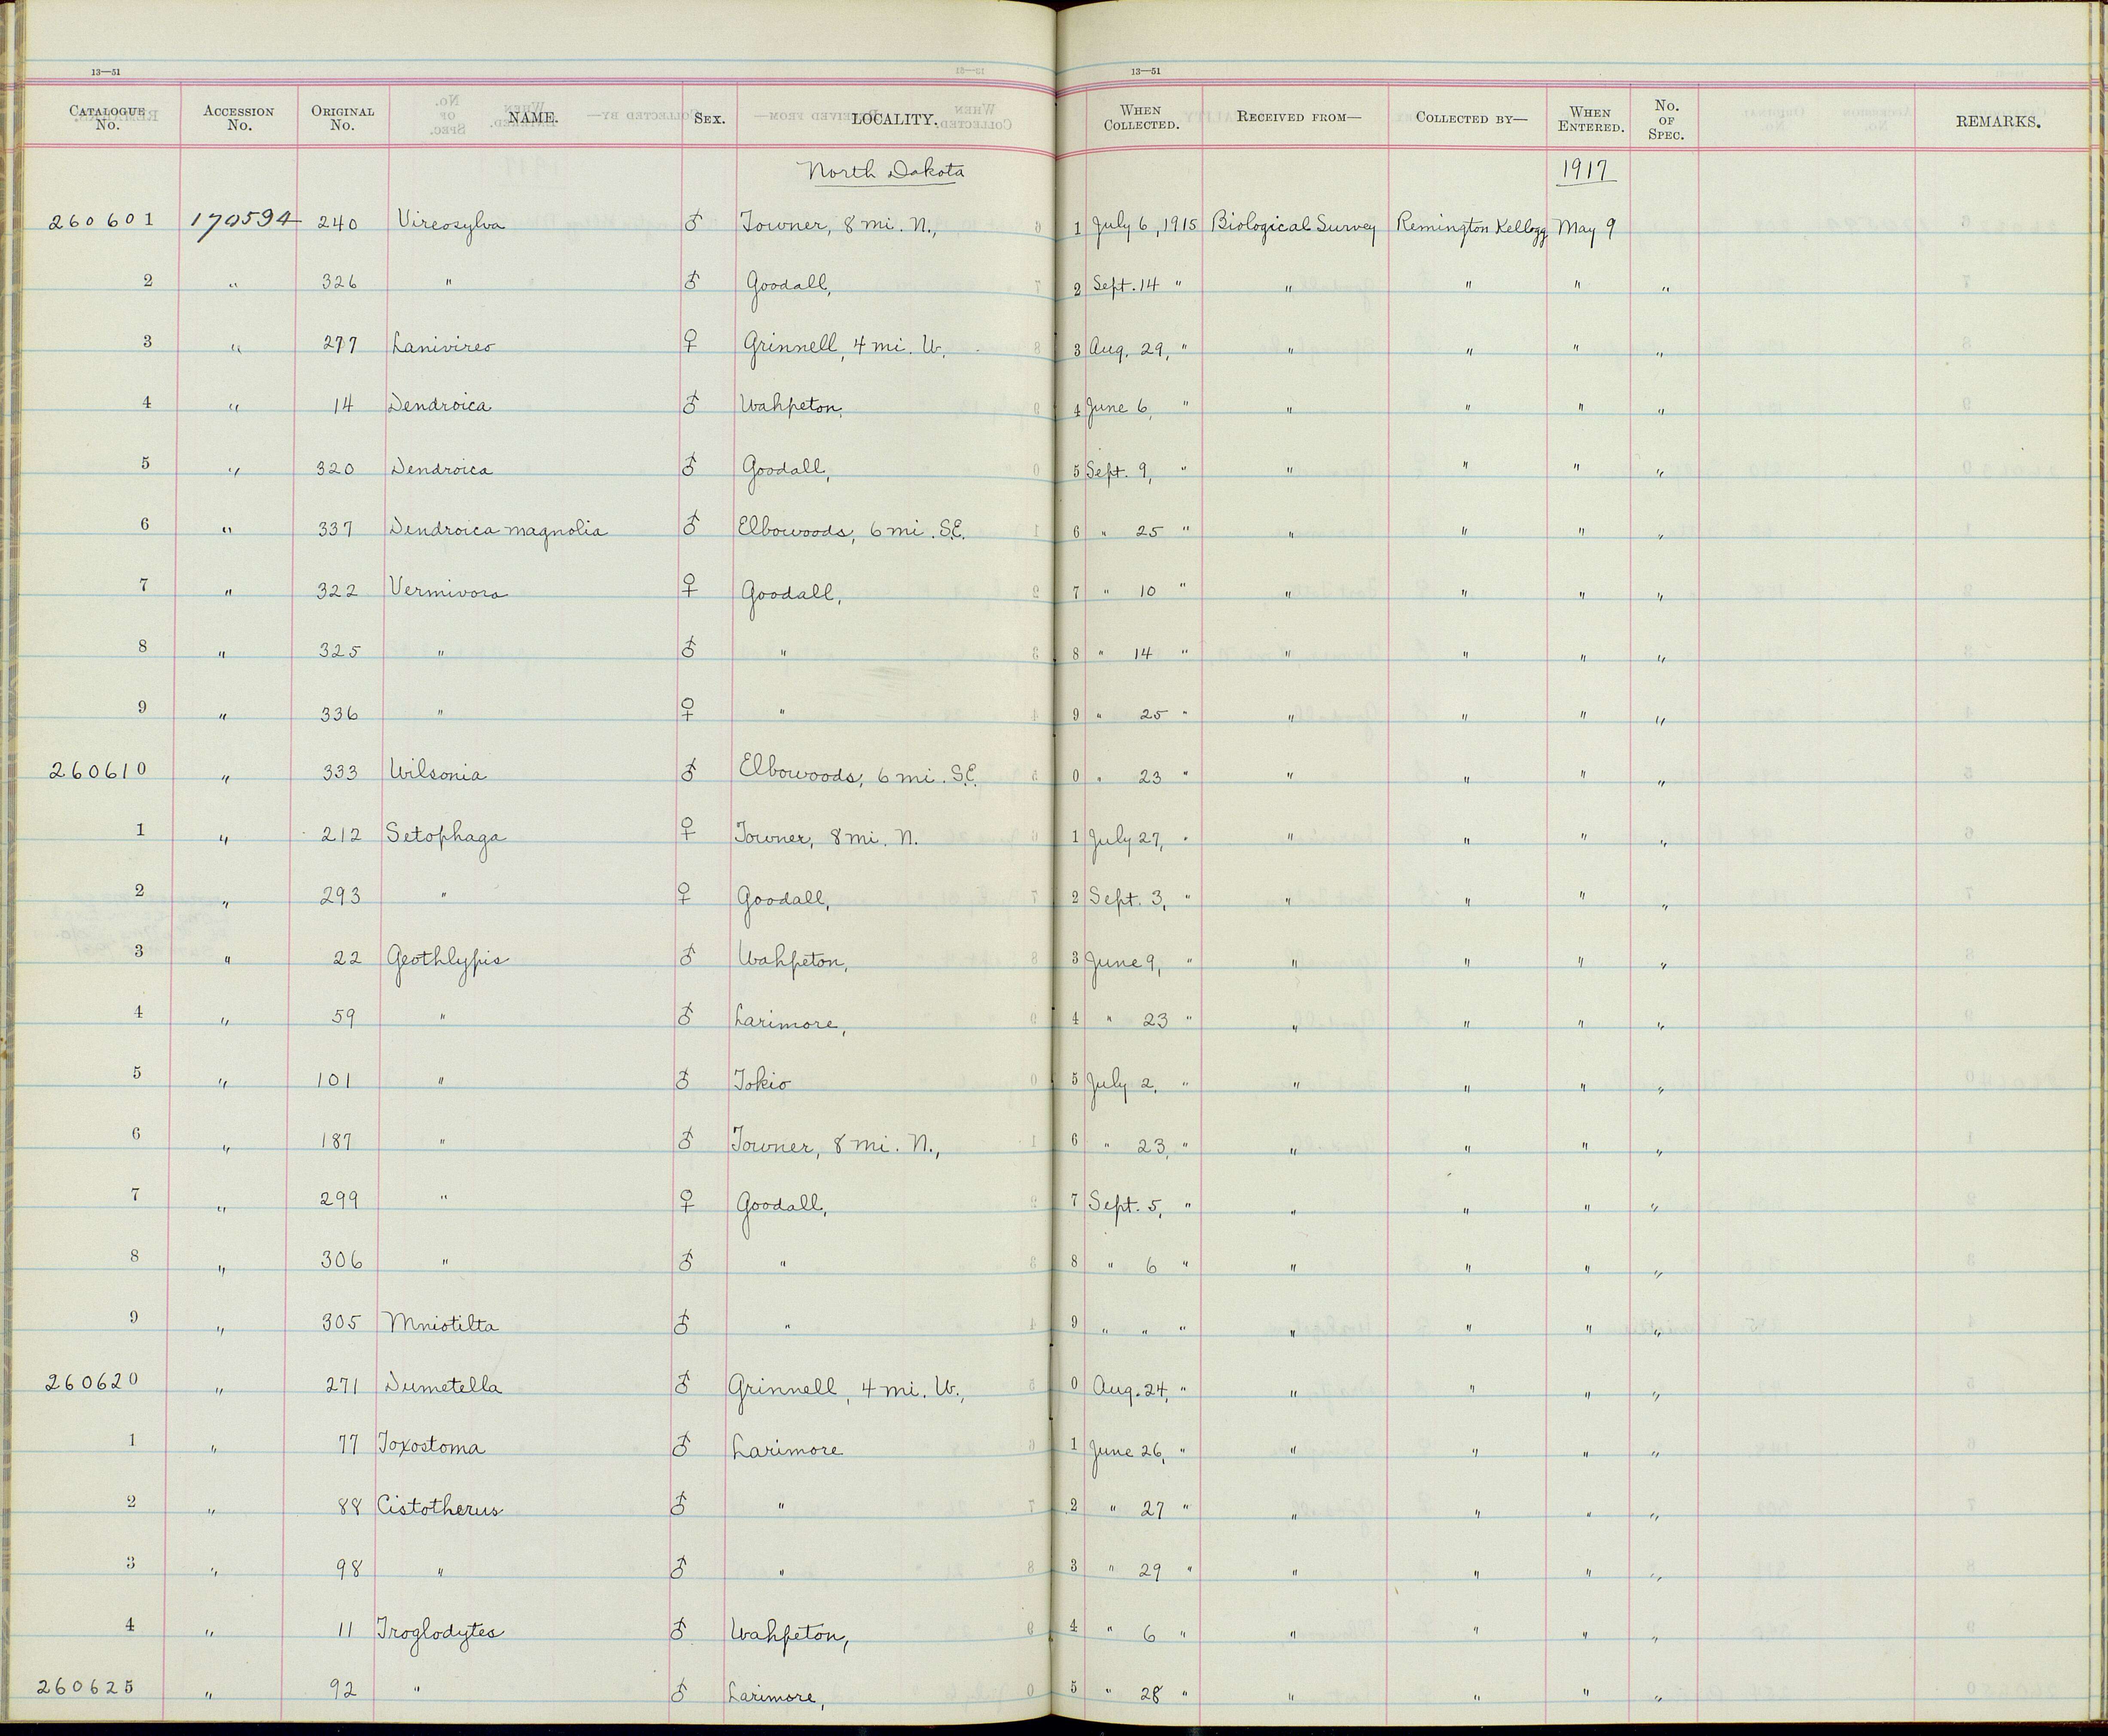 13—51 13—51
CATALOGUE No. ACCESSION No. ORIGINAL No. NAME. SEX. LOCALITY. WHEN COLLECTED. RECEIVED FROM— COLLECTED BY— WHEN ENTERED. No. OF SPEC. REMARKS.
North Dakota 1917
260601 170594 240 Vireosylva ♂ Towner, 8 mi. N., 1 July 6, 1915 Biological Survey Remington Kellogg May 9
2 " 326 " ♂ Goodall, 2 Sept. 14 " " " " "
3 " 277 Lanivireo ♀ Grinnell, 4 mi. W. 3 Aug. 29, " " " " "
4 " 14 Dendroica ♂ Wahpeton, 4 June 6, " " " " "
5 " 320 Dendroica ♂ Goodall, 5 Sept. 9, " " " " "
6 " 337 Dendroica magnolia ♂ Elbowoods, 6 mi. S.E. 6 " 25 " " " " "
7 " 322 Vermivora ♀ Goodall, 7 " 10 " " " " "
8 " 325 " ♂ " 8 " 14 " " " " "
9 " 336 " ♀ " 9 " 25 " " " " "
260610 " 333 Wilsonia ♂ Elbowoods, 6 mi. S.E. 0 " 23 " " " " "
1 " 212 Setophaga ♀ Towner, 8 mi. N. 1 July 27, " " " " "
2 " 293 " ♀ Goodall, 2 Sept. 3, " " " " "
3 " 22 Geothlypis ♂ Wahpeton, 3 June 9, " " " " "
4 " 59 " ♂ Larimore, 4 " 23 " " " " "
5 " 101 " ♂ Tokio 5 July 2, " " " " "
6 " 187 " ♂ Towner, 8 mi. N., 6 " 23, " " " " "
7 " 299 " ♀ Goodall, 7 Sept. 5, " " " " "
8 " 306 " ♂ " 8 " 6 " " " " "
9 " 305 Mniotilta ♂ " 9 " " " " " " "
260620 " 271 Dumetella ♂ Grinnell, 4 mi. W., 0 Aug. 24, " " " " "
1 " 77 Toxostoma ♂ Larimore 1 June 26, " " " " "
2 " 88 Cistothorus ♂ " 2 " 27 " " " " "
3 " 98 " ♂ " 3 " 29 " " " " "
4 " 11 Troglodytes ♂ Wahpeton, 4 " 6 " " " " "
260625 " 92 " ♂ Larimore, 5 " 28 " " " " "